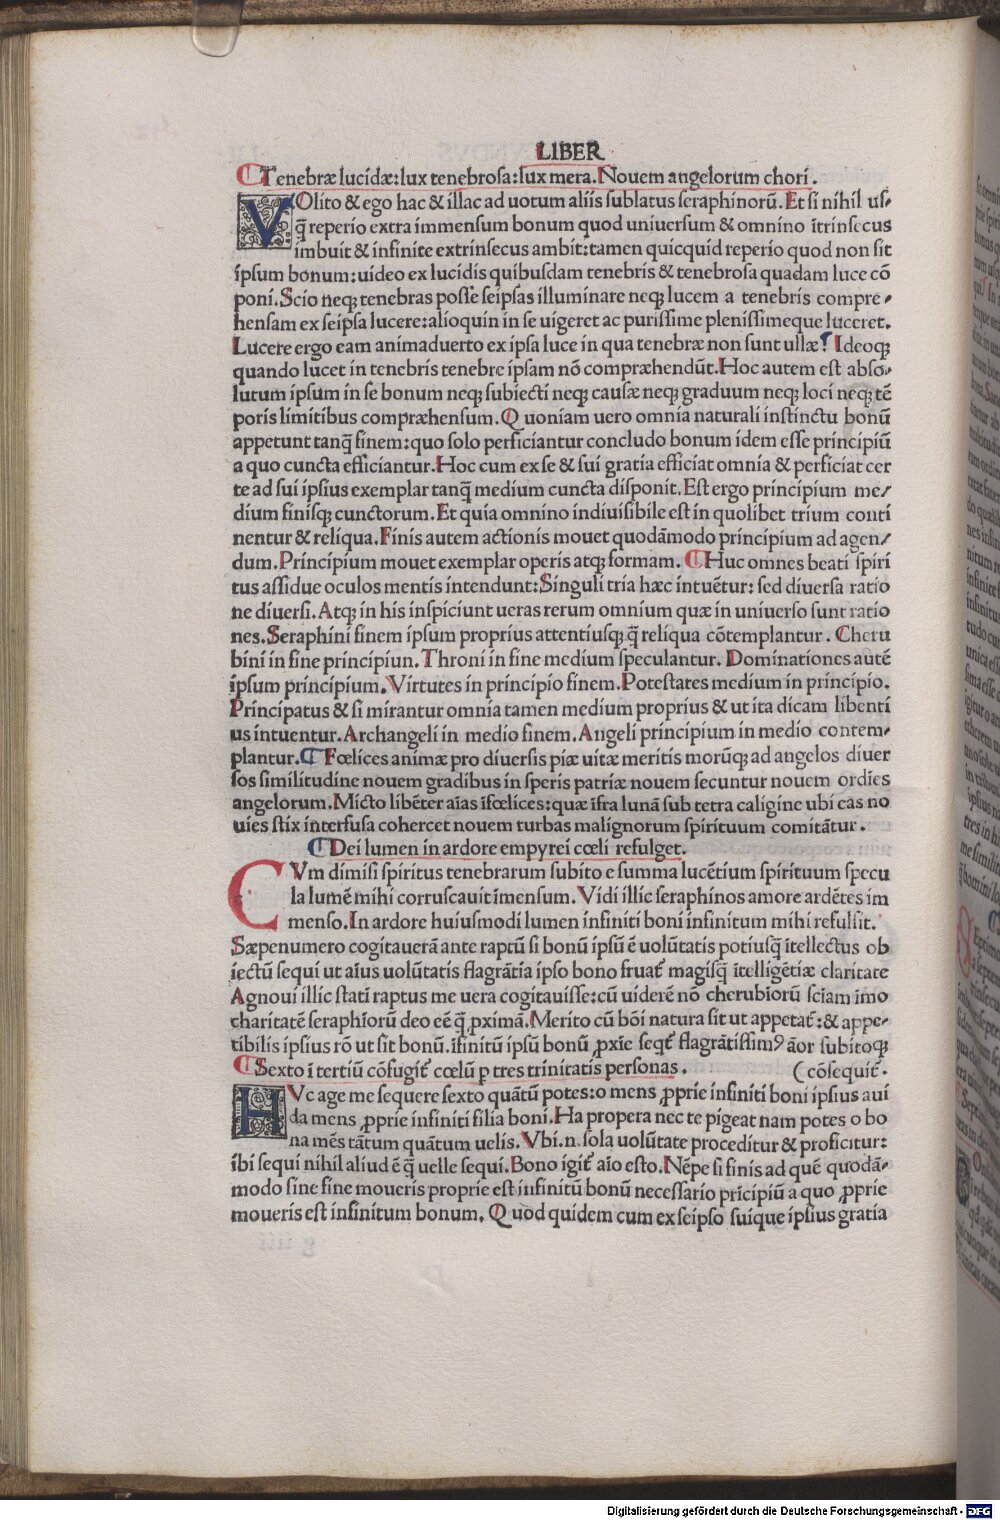 LIBER
Tenebræ lucidæ: lux tenebrosa: lux mera. Nouem angelorum chori.
VOlito & ego hac & illac ad uotum aliis sublatus seraphinorū. Et si nihil us⸗
q̄ reperio extra immensum bonum quod uniuersum & omnino ītrinsecus
imbuit & infinite extrinsecus ambit: tamen quicquid reperio quod non sit
ipsum bonum: uideo ex lucidis quibusdam tenebris & tenebrosa quadam luce cō
poni. Scio neqꝫ tenebras posse seipsas illuminare neqꝫ lucem a tenebris compre⸗
hensam ex seipsa lucere: alioquin in se uigeret ac purissime plenissimeque luceret.
Lucere ergo eam animaduerto ex ipsa luce in qua tenebræ non sunt ullæ? Ideoqꝫ
quando lucet in tenebris tenebre ipsam nō compræhendūt. Hoc autem est abso⸗
lutum ipsum in se bonum neqꝫ subiecti neqꝫ causæ neqꝫ graduum neqꝫ loci neqꝫ tē
poris limitibus compræhensum. Quoniam uero omnia naturali instinctu bonū
appetunt tanq̄ finem: quo solo perficiantur concludo bonum idem esse principiū
a quo cuncta efficiantur. Hoc cum ex se & sui gratia efficiat omnia & perficiat cer
te ad sui ipsius exemplar tanq̄ medium cuncta disponit. Est ergo principium me⸗
dium finisqꝫ cunctorum. Et quia omnino indiuisibile est in quolibet trium conti
nentur & reliqua. Finis autem actionis mouet quodāmodo principium ad agen⸗
dum. Principium mouet exemplar operis atqꝫ formam. Huc omnes beati spiri
tus assidue oculos mentis intendunt: Singuli tria hæc intuētur: sed diuersa ratio
ne diuersi. Atqꝫ in his inspiciunt ueras rerum omnium quæ in uniuerso sunt ratio
nes. Seraphini finem ipsum proprius attentiusqꝫ q̄ reliqua cōtemplantur. Cheru
bini in fine principiun. Throni in fine medium speculantur. Dominationes autē
ipsum principium. Virtutes in principio finem. Potestates medium in principio.
Principatus & si mirantur omnia tamen medium proprius & ut ita dicam libenti
us intuentur. Archangeli in medio finem. Angeli principium in medio contem⸗
plantur. Fœlices animæ pro diuersis piæ uitæ meritis morūqꝫ ad angelos diuer
sos similitudine nouem gradibus in speris patriæ nouem secuntur nouem ordīes
angelorum. Micto libēter aīas īfœlices: quæ īfra lunā sub tetra caligine ubi cas no
uies stix intersusa cohercet nouem turbas malignorum spirituum comitātur.
Dei lumen in ardore empyrei cœli refulget.
CVm dimisi spiritus tenebrarum subito e summa lucētium spirituum specu
la lumē mihi corruscauit imensum. Vidi illic seraphinos amore ardētes im
menso. In ardore huiusmodi lumen infiniti boni infinitum mihi refulsit.
Sæpenumero cogitauerā ante raptū si bonū ipsū ē uolūtatis potiusq̄ ītellectus ob
iectū sequi ut aīus uolūtatis flagrātia ipso bono fruat᷑ magisq̄ ītelligētiæ claritate
Agnoui illic statī raptus me uera cogitauisse: cū uiderē nō cherubīorū sciam imo
charitatē seraphīorū deo eē q̄ ꝓximā. Merito cū bōi natura sit ut appetat᷑: & appe⸗
tibilis ipsius rō ut sit bonū. īfinitū ipsū bonū ꝓxīe seqt᷑ flagrātissimꝰ āor subitoqꝫ
Sexto ī tertiū cōfugit᷑ cœlū p tres trinitatis personas. (cōsequit᷑.
HVc age me sequere sexto quātū potes: o mens ꝓprie infiniti boni ipsius aui
da mens ꝓprie infiniti filia boni. Ha propera nec te pigeat nam potes o bo
na mēs tātum quātum uelis. Vbi.n. sola uolūtate proceditur & proficitur:
ibi sequi nihil aliud ē q̄ uelle sequi. Bono igit᷑ aīo esto. Nēpe si finis ad quē quodā⸗
modo sine fine moueris proprie est infinitū bonū necessario pricipiū a quo ꝓprie
moueris est infinitum bonum. Quod quidem cum ex seipso suique ipsius gratia
Digitalisierung gefördert durch die Deutsche Forschungsgemeinschaft - DFG